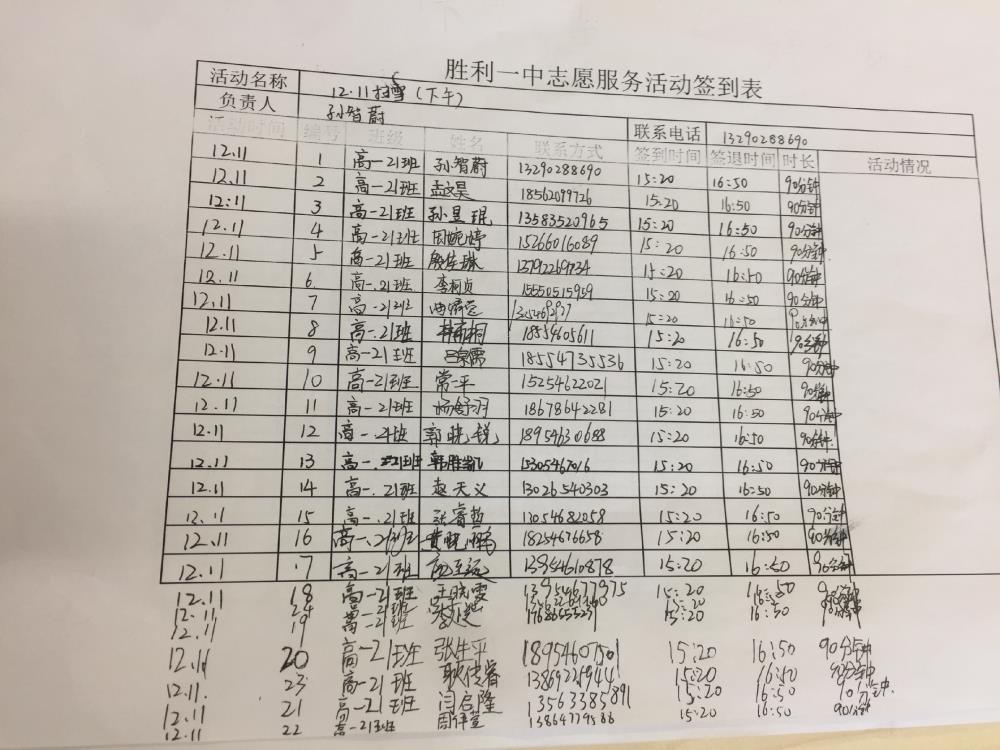 胜利一中志愿服务活动签到表
活动名称 12.11扫雪(下午)
负责人 孙智蔚 联系电话 13290288690
活动时间 编号 班级 姓名 联系方式 签到时间 签退时间 时长 活动情况
12.11 1 高一21班 孙智蔚 13290288690 15:20 16:50 90分钟
12.11 2 高一21班 孟文昊 18562079726 15:20 16:50 90分钟
12.11 3 高一21班 孙昱琨 13583520965 15:20 16:50 90分钟
12.11 4 高一21班 周婉婷 15266016089 15:20 16:50 90分钟
12.11 5 高一21班 13792269734 15:20 16:50 90分钟
12.11 6 高一.21班 李柯贞 15550515959 15:20 16:50 90分钟
12.11 7 高一21班 15:20 16:50
12.11 8 高一.21班 18554605611 15:20 16:50 90分钟
12.11 9 高一21班 18554735536 15:20 16:50 90分钟
12.11 10 高一21班 常一平 15254622021 15:20 16:50 90分钟
12.11 11 高一.21班 杨舒羽 18678642281 15:20 16:50 90分钟
12.11 12 高一.21班 郭晓锐 18954630688 15:20 16:50 90分钟
12.11 13 高一.21班 韩胜凯 15305467016 15:20 16:50 90分钟
12.11 14 高一.21班 赵天义 13026540303 15:20 16:50 90分钟
12.11 15 高一.21班 张睿哲 13054682058 15:20 16:50 90分钟
12.11 16 高一.21班 黄晓鹏 18254676658 15:20 16:50 90分钟
12.11 17 高一.21班 13954610878 15:20 16:50 90分钟
12.11 18 高一21班 王晓雯 13954677975 15:20 16:50 90分钟
12.11 24 高一21班 15:20 16:50
12.11 19 高一21班 15:20 16:50 90分钟
12.11 20 高一21班 张生平 18954607501 15:20 16:50 90分钟
12.11. 23 高一21班 耿传睿 13869221944 15:20 16:50 90分钟
12.11 21 高一21班 闫启隆 13563385891 15:20 16:50 90分钟.
12.11 22 高一21班 13864779586 15:20 16:50 90分钟